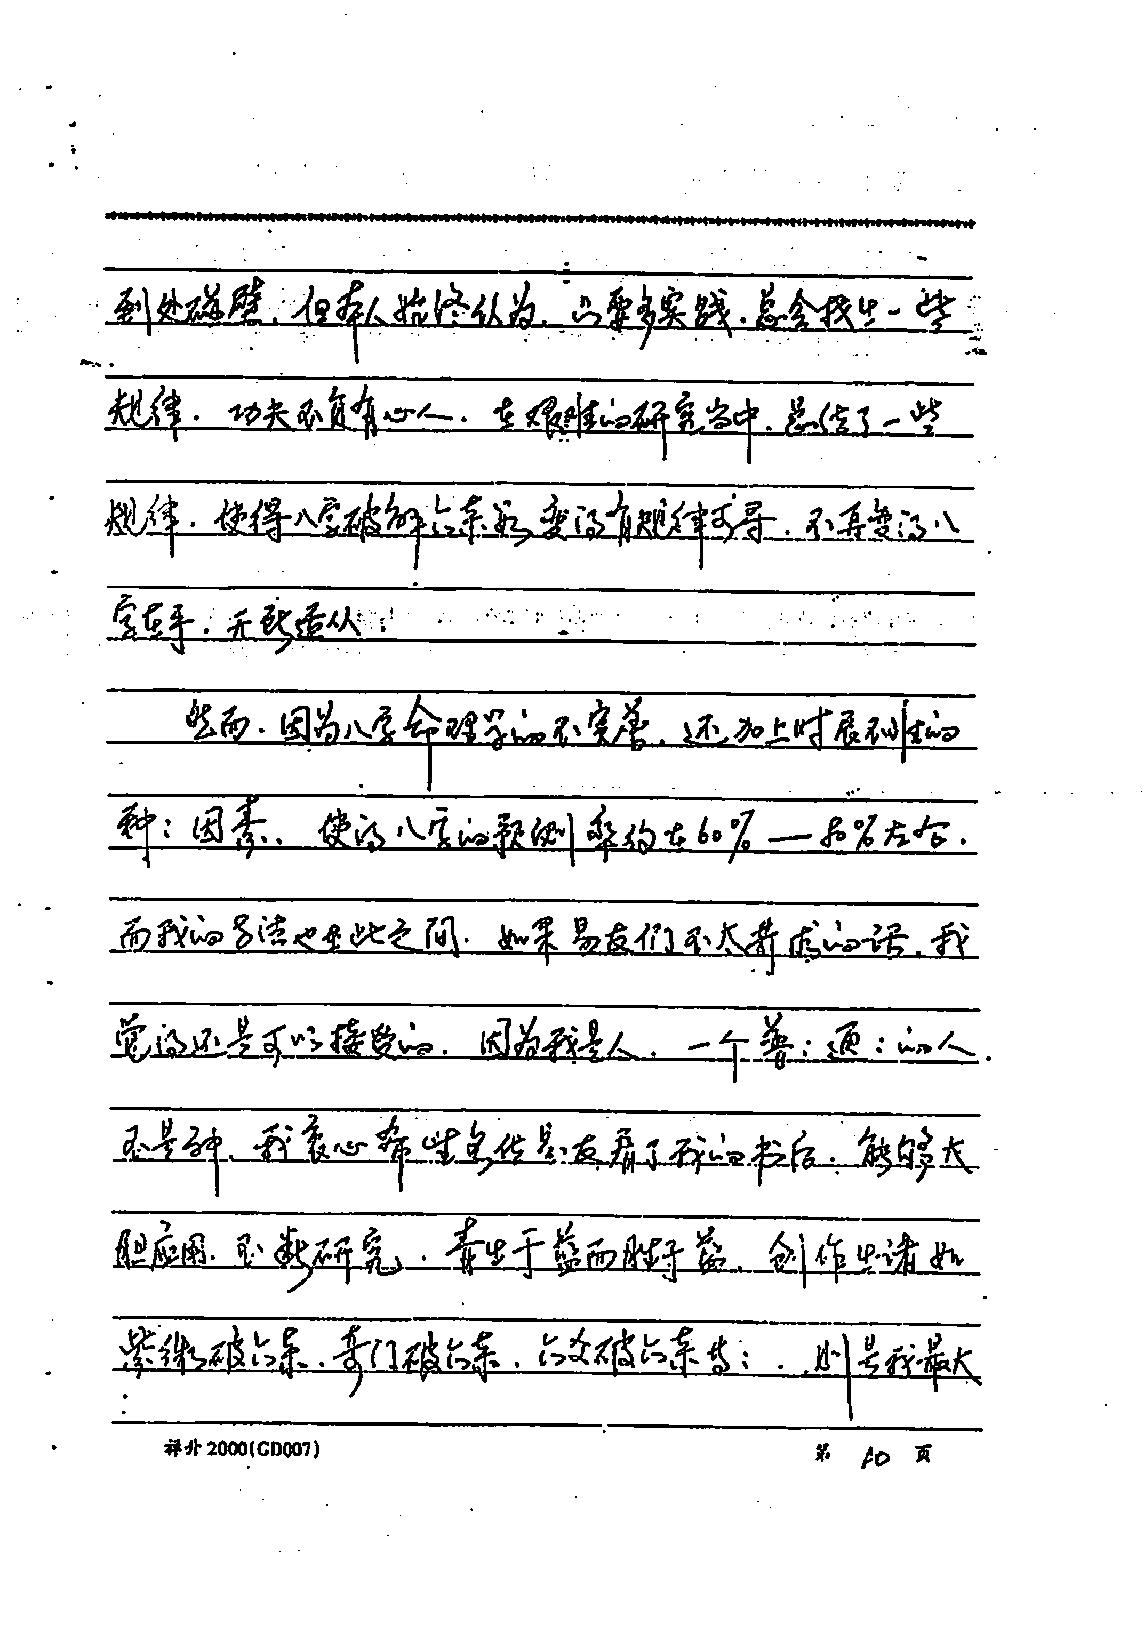 到处碰壁.但本人始终认为.只要多实践.总会找出一些
规律.功夫不负有心人.在艰难的研究当中.总结了一些
规律.使得八字破解六亲 变得有规律可寻.不再变得八
字在手.无所适从.
然而.因为八字命理学的不完善.还加上时辰不准的
种:因素、使得八字的预测率约在60%—80%左右.
而我的方法也在此之间.如果易友们不太苛求的话.我
觉得还是可以接受的.因为我是人.一个普:通:的人.
不是神.我衷心希望各位易友看了我的书后.能够大
胆应用.不断研究.青出于蓝而胜于蓝.创作出诸如
紫微破六亲.奇门破六亲.六爻破六亲等:..则是我最大
2000(GD007) 第 10 页